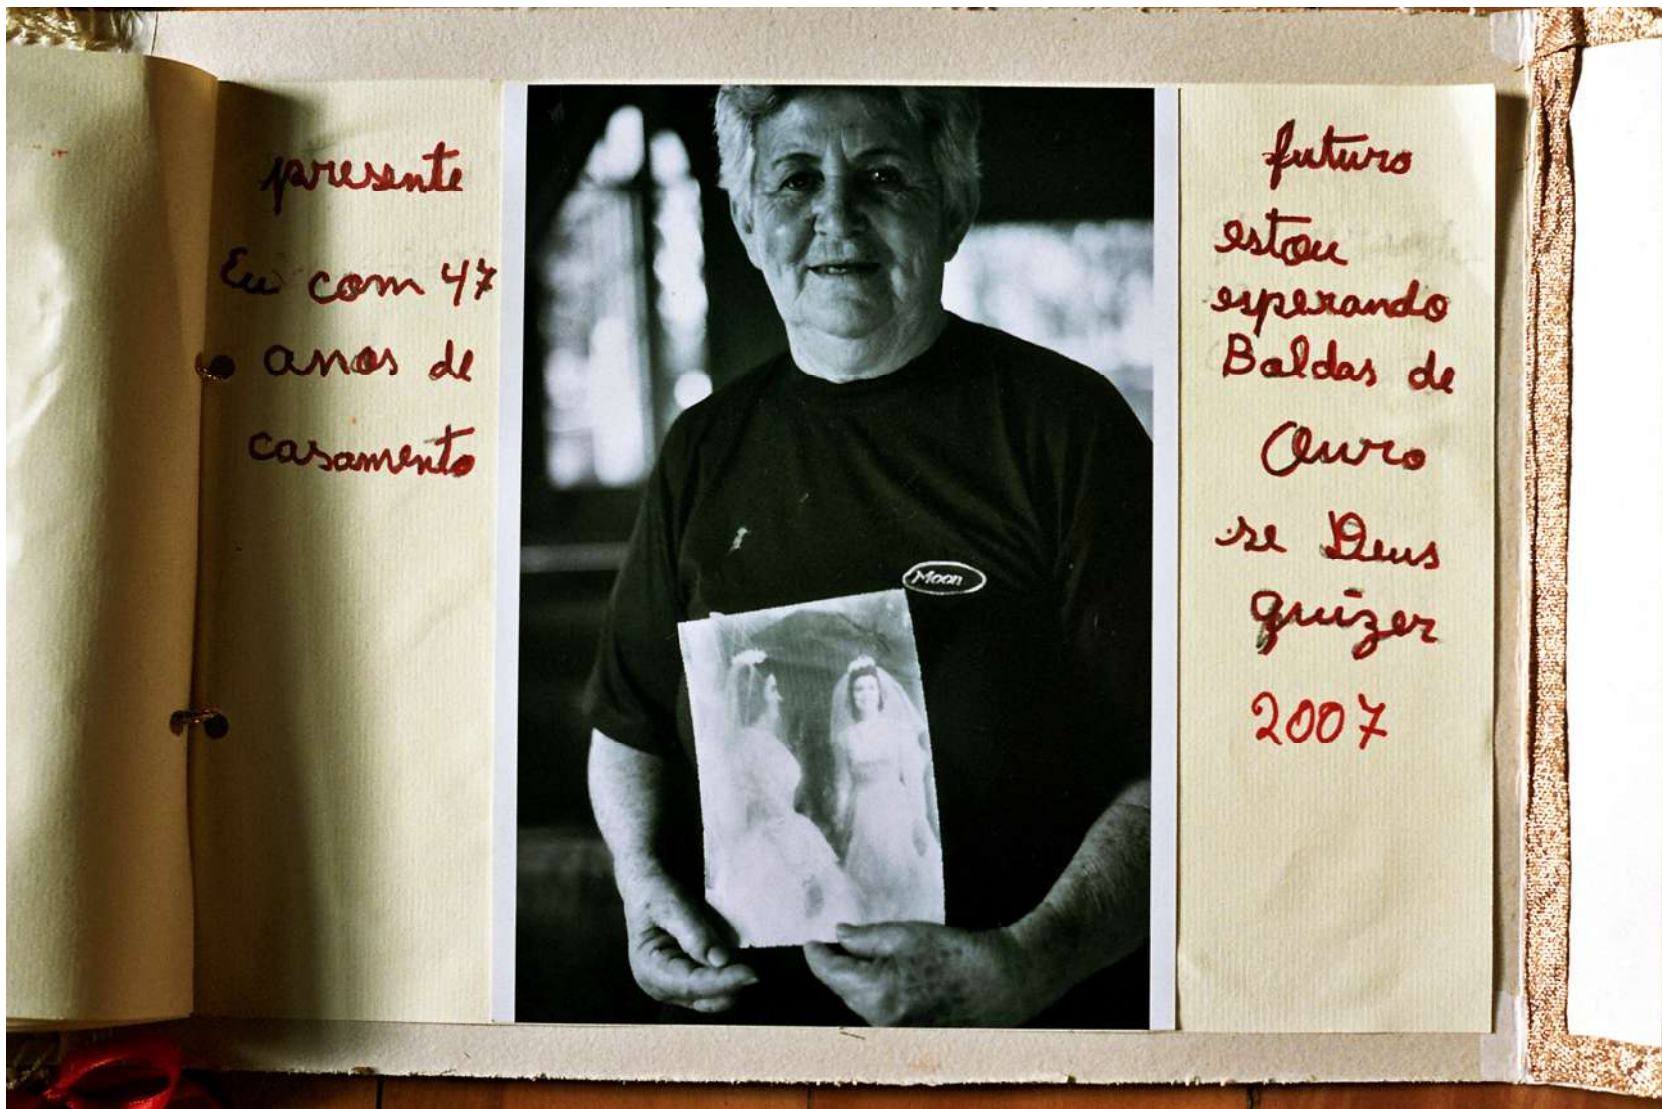 presente
Eu com 47
anos de
casamento
Moon
futuro
estou
esperando
Boldas de
Ouro
se Deus
quizer
2007